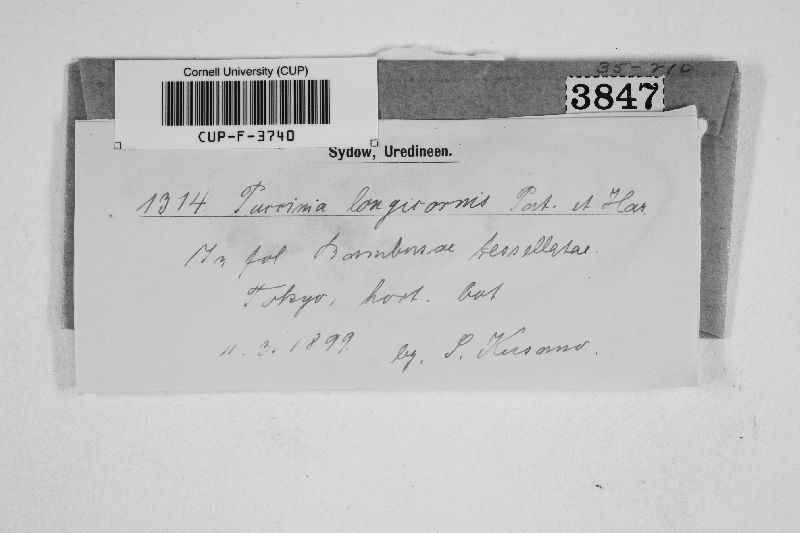 Cornell University (CUP)
CUP-F-3740
35-210
3847
Sydow, Uredineen.
1314 Puccinia longicornis Pat. et Har
In fol Bambusae tessellatae.
Tokyo, hort. bot.
11. 3. 1899. lg. S. Kusano.